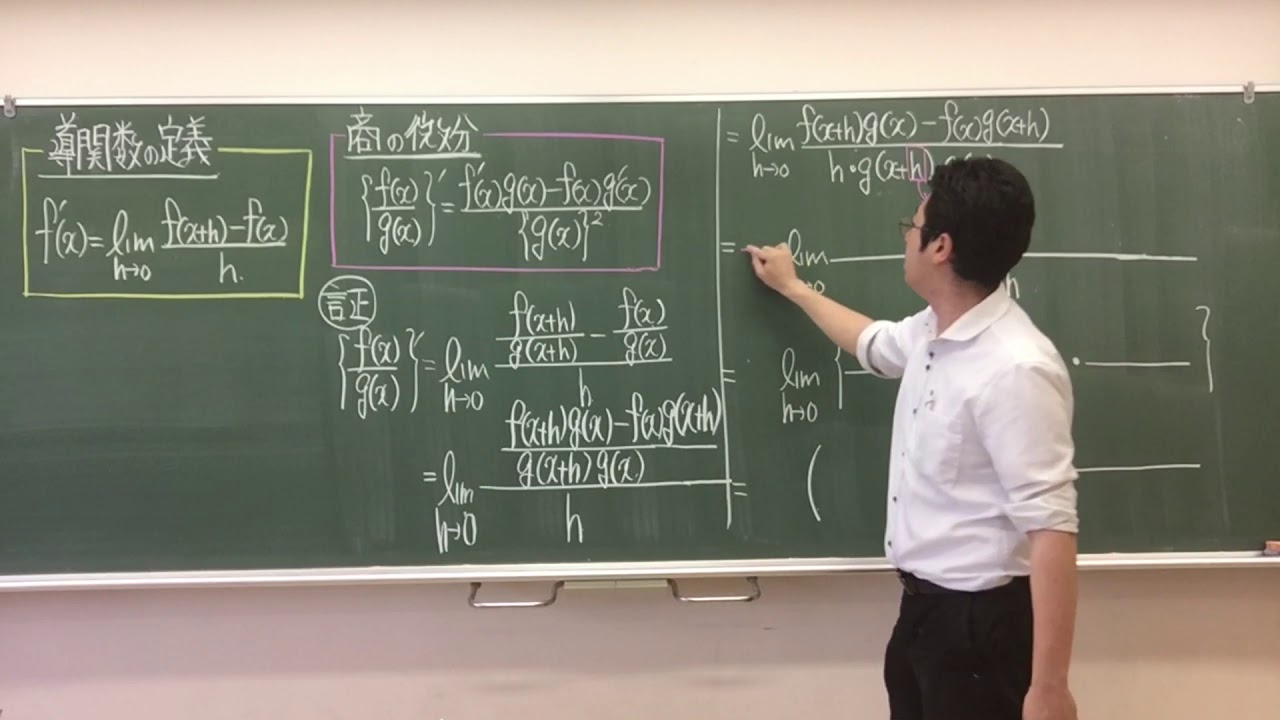 導関数の定義
f'(x) = lim h→0 f(x+h) − f(x) / h.
商の微分
{f(x)/g(x)}' = f'(x)g(x) − f(x)g'(x) / {g(x)}²
証
{f(x)/g(x)}' = lim h→0 f(x+h)/g(x+h) − f(x)/g(x) / h
= lim h→0 f(x+h)g(x) − f(x)g(x+h) / g(x+h)g(x) / h
= lim h→0 f(x+h)g(x) − f(x)g(x+h) / h・g(x+h)
= lim →0 h
= lim h→0 { ・ }
= (